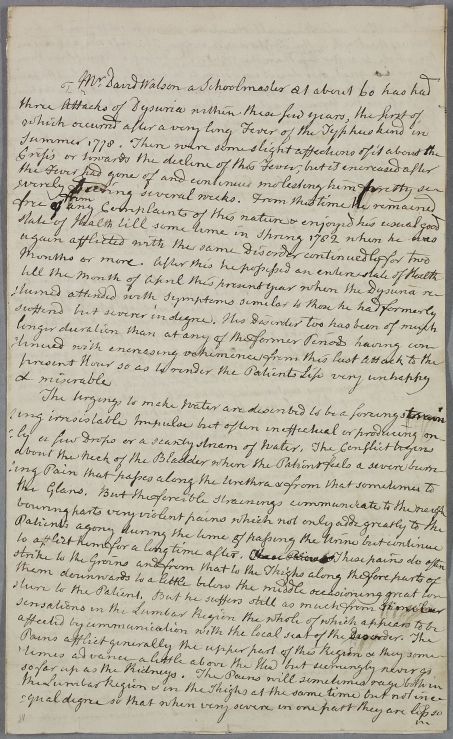 Mr. David Watson a Schoolmaster æt about 60 has had
three Attacks of Dysuria within these few years, the first of
which occurred after a very long Fever of the Typhus kind in
Summer 1778. There were some slight affections of it about the
Crisis or towards the decline of this Fever, but it increased after
the Fever had gone of and continued molesting him pretty se
verely during several weeks. From this time he remained
free from any Complaints of this nature & enjoyed his usual good
state of Health till some time in Spring 1782 when he was
again afflicted with the same Disorder continuedly for two
Months or more. After this he possessed an entire state of Health
till the Month of April this present year when the Dysuria re
turned attended with Symptoms similar to those he had formerly
suffered but severer in degree. This disorder too has been of much
longer duration than at any of the former Periods having con
tinued with encreasing vehemence from this last Attack to the
present Hour so as to render the Patients Life very unhappy
& miserable
The Urgings to make Water are described to be a forcing strain
ing irresistable Impulse but often ineffectual or producing on
ly a few drops or a scanty stream of Water. The Conflict begins
about the Neck of the Bladder when the Patient feels a severe burn
ing Pain that passes along the Urethra & from that sometimes to
the Glans. But the forcible Strainings communicate to the neigh
bouring parts very violent pains which not only adds greatly to the
Patients agony during the time of passing the Urine but continue
to afflict him for a long time after. These pains do often
strike to the Groins and from that to the Thighs along the foreparts of
them downwards to a little below the middle occasioning great tor
ture to the Patient. But he suffers still as much from similar
sensations in the Lumbar Region the whole of which appears to be
affected by communication with the local seat of the disorder. The
Pains afflict generally the upper part of this Region & they some
times advance a little above the Ilea but seemingly never go
so far up as the Kidneys. The Pains will sometimes rage both in
the Lumbar Region & in the Thighs at the same time but not in e
qual degree so that when very severe in one part they are less so
in